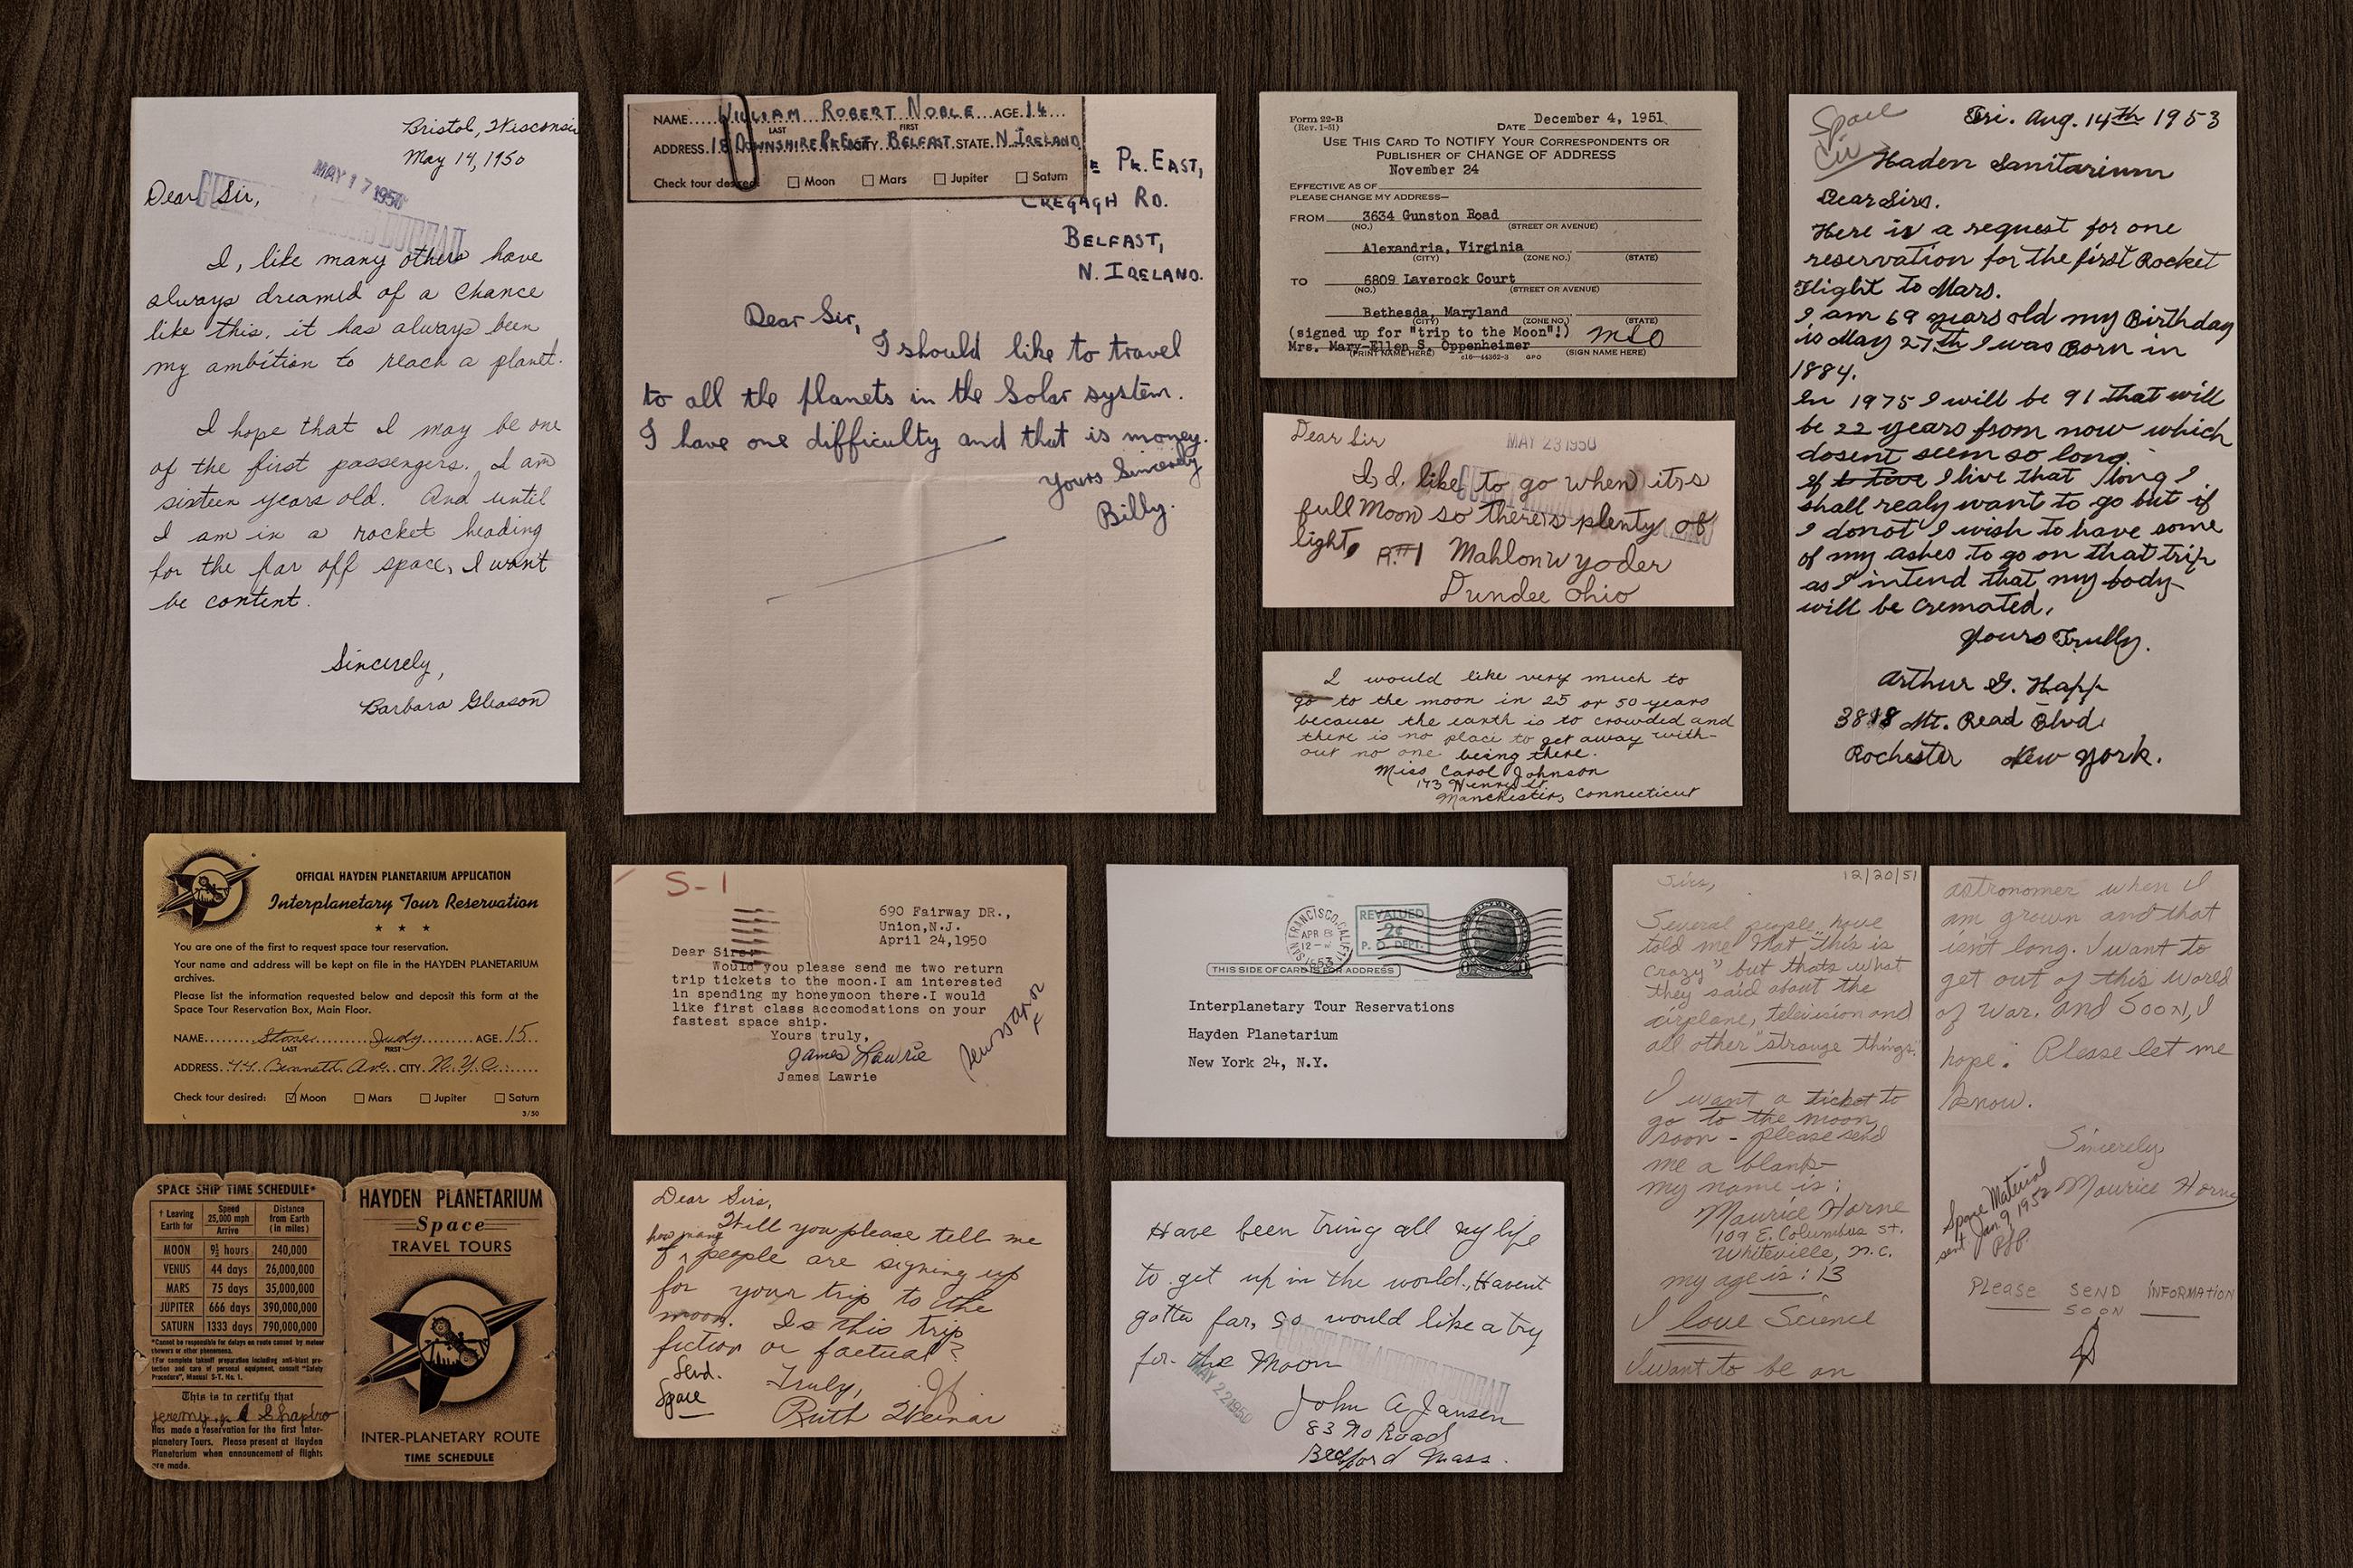 Bristol, Wisconsin
May 14, 1950
MAY 17 1950
Dear Sir,
I, like many others have
always dreamed of a chance
like this, it has always been
my ambition to reach a planet.
I hope that I may be one
of the first passengers. I am
sixteen years old. And until
I am in a rocket heading
for the far off space, I won't
be content.
Sincerely,
Barbara Gleason
NAME WILLIAM ROBERT NOBLE AGE 14
LAST FIRST
ADDRESS 18 DOWNSHIRE PK EAST CITY BELFAST STATE N. IRELAND
Check tour desired: Moon Mars Jupiter Saturn
E PK. EAST,
CREGAGH RD.
BELFAST,
N. IRELAND.
Dear Sir,
I should like to travel
to all the planets in the Solar system.
I have one difficulty and that is money.
Yours Sincerely
Billy.
Form 22-B
(Rev. 1-51)
DATE December 4, 1951
USE THIS CARD TO NOTIFY YOUR CORRESPONDENTS OR
PUBLISHER OF CHANGE OF ADDRESS
November 24
EFFECTIVE AS OF
PLEASE CHANGE MY ADDRESS—
FROM 3634 Gunston Road
(NO.) (STREET OR AVENUE)
Alexandria, Virginia
(CITY) (ZONE NO.) (STATE)
TO 6809 Laverock Court
(NO.) (STREET OR AVENUE)
Bethesda, Maryland
(CITY) (ZONE NO.) (STATE)
(signed up for "trip to the Moon"!) MSO
Mrs. Mary-Ellen S. Oppenheimer
(PRINT NAME HERE) c16—44362-3 GPO (SIGN NAME HERE)
Dear Sir
MAY 23 1950
I,d. like to go when its
full Moon so there's plenty of
light, R.#1 Mahlon W Yoder
Dundee Ohio
I would like very much to
go to the moon in 25 or 50 years
because the earth is to crowded and
there is no place to get away with-
out no one being there.
Miss Carol Johnson
173 Henry St.
Manchester, Connecticut
Space
Fri. Aug. 14th 1953
Haden Sanitarium
Dear Sirs.
Here is a request for one
reservation for the first Rocket
Flight to Mars.
I am 69 years old my Birthday
is May 27th I was Born in
1884.
In 1975 I will be 91 that will
be 22 years from now which
dosent seem so long.
if I live that long I
shall realy want to go but if
I donot I wish to have some
of my ashes to go on that trip
as I intend that my body
will be cremated.
Yours Trully.
Arthur G. Happ
3818 Mt. Read Blvd.
Rochester New York.
OFFICIAL HAYDEN PLANETARIUM APPLICATION
Interplanetary Tour Reservation
You are one of the first to request space tour reservation.
Your name and address will be kept on file in the HAYDEN PLANETARIUM
archives.
Please list the information requested below and deposit this form at the
Space Tour Reservation Box, Main Floor.
NAME Stone Judy AGE 15
LAST FIRST
ADDRESS 44 Bennett Ave. CITY N.Y.C.
Check tour desired: Moon Mars Jupiter Saturn
3/50
S-1
690 Fairway DR.,
Union,N.J.
April 24,1950
Dear Sirs
Would you please send me two return
trip tickets to the moon.I am interested
in spending my honeymoon there.I would
like first class accomodations on your
fastest space ship.
Yours truly,
James Lawrie
James Lawrie
SAN FRANCISCO, CALIF.
APR 8
1953
REVALUED
2¢
P. O. DEPT.
THIS SIDE OF CARD IS FOR ADDRESS
Interplanetary Tour Reservations
Hayden Planetarium
New York 24, N.Y.
12/20/51
Sirs,
Several people have
told me that "this is
crazy" but thats what
they said about the
airplane, television and
all other "strange things."
I want a ticket to
go to the moon,
soon - please send
me a blank-
my name is:
Maurice Horne
109 E. Columbus St.
Whiteville, N.C.
my age is: 13
I love Science
I want to be an
astronomer when I
am grown and that
isn't long. I want to
get out of this world
of war. and SOON, I
hope. Please let me
know.
Sincerely,
Maurice Horne
Space Material
sent Jan 9 1952
PLEASE SEND INFORMATION
SOON
SPACE SHIP TIME SCHEDULE*
† Leaving Earth for Speed 25,000 mph Arrive Distance from Earth (in miles)
MOON 9½ hours 240,000
VENUS 44 days 26,000,000
MARS 75 days 35,000,000
JUPITER 666 days 390,000,000
SATURN 1333 days 790,000,000
*Cannot be responsible for delays en route caused by meteor
showers or other phenomena.
†For complete takeoff preparation including anti-blast pro-
tection and care of personal equipment, consult "Safety
Procedure", Manual S-T. No. 1.
This is to certify that
Jeremy Shapiro
Has made a reservation for the first Inter-
planetary Tours. Please present at Hayden
Planetarium when announcement of flights
are made.
HAYDEN PLANETARIUM
Space
TRAVEL TOURS
INTER-PLANETARY ROUTE
TIME SCHEDULE
Dear Sirs,
Will you please tell me
how many people are signing up
for your trip to the
moon. Is this trip
fiction or factual?
Send. Truly,
Space Ruth Weinar
Have been Tring all my life
to get up in the world, Havent
gotten far, so would like a try
for the Moon
MAY 22 1950
John A Jansen
83 No Road
Bedford Mass.